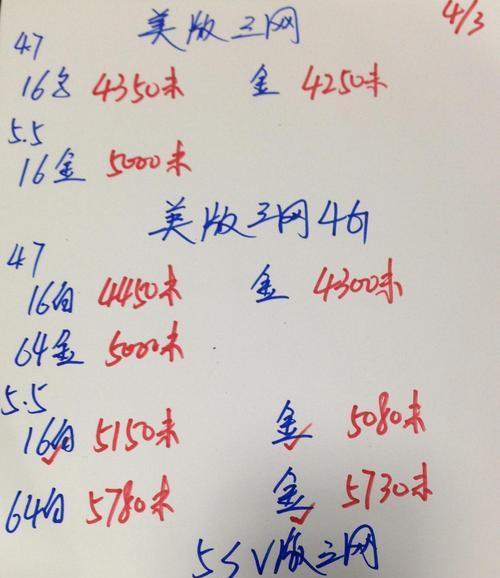 美版三网 4/3
47
16白 4350未 金 4250未
5.5
16金 5000未
美版三网4G
47
16白 4450未 金 4300未
64金 5000未
5.5
16白 5150未 金 5080未
64白 5780未 金 5730未
5S V版三网